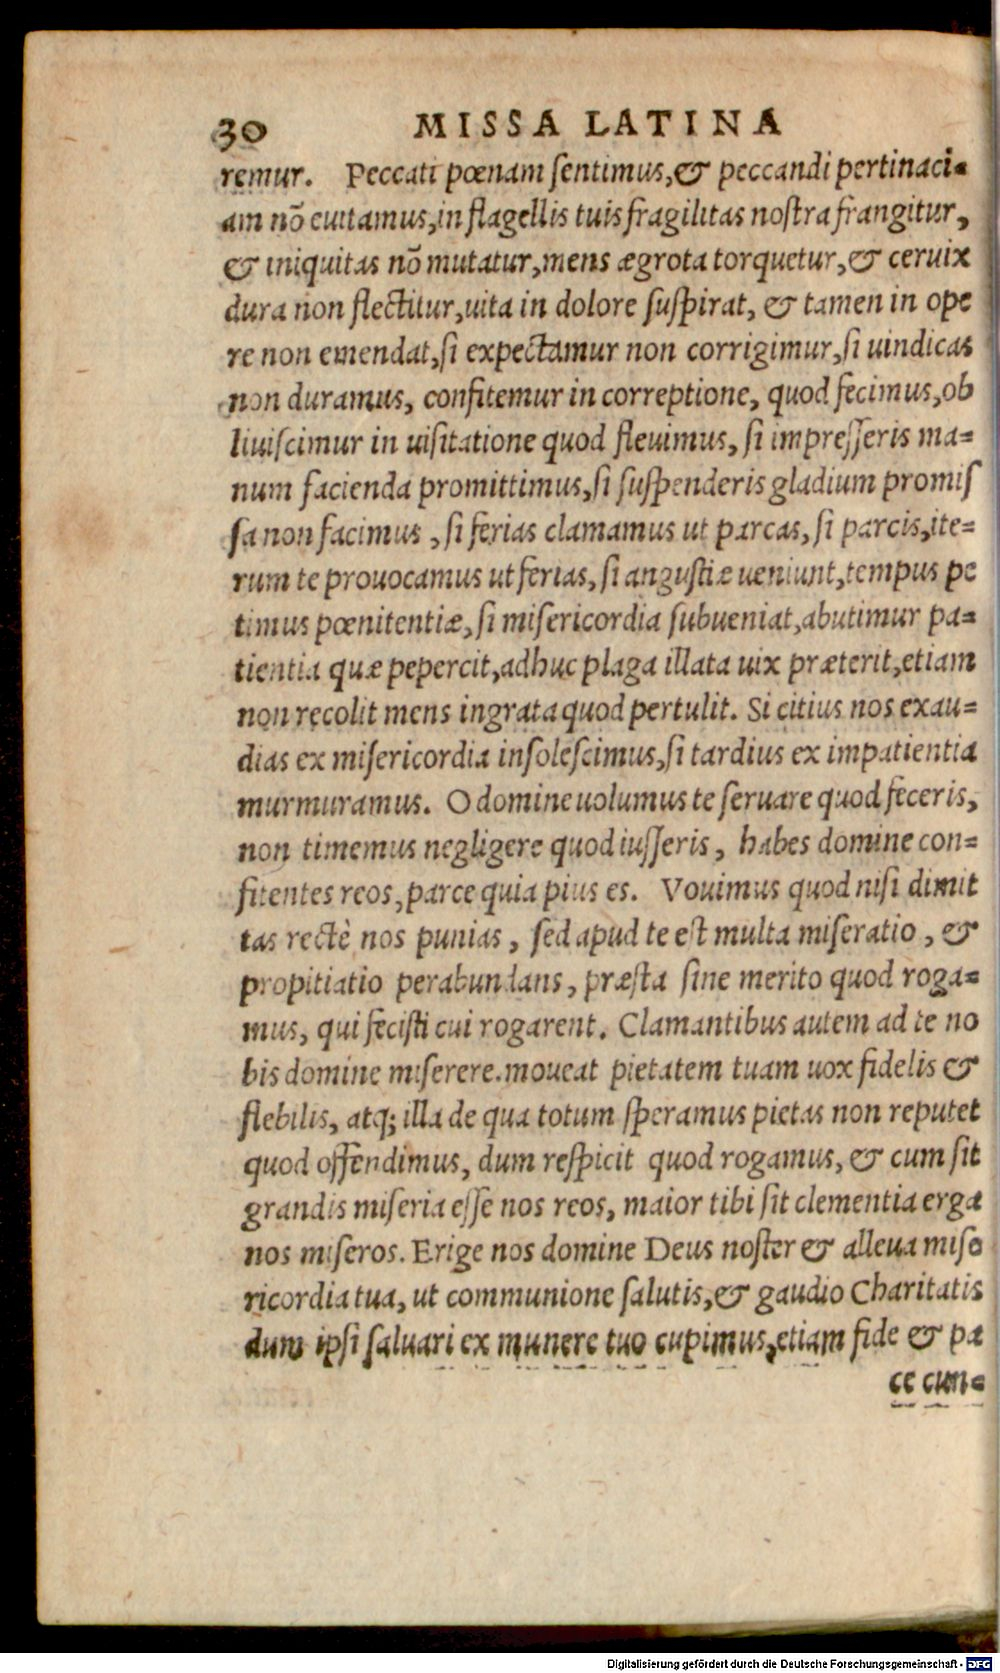 30 MISSA LATINA
remur. Peccati pœnam ſentimus,& peccandi pertinaci-
am nõ euitamus,in flagellis tuis fragilitas noſtra frangitur,
& iniquitas nõ mutatur,mens ægrota torquetur,& ceruix
dura non flectitur,uita in dolore ſuſpirat, & tamen in ope
re non emendat,ſi expectamur non corrigimur,ſi uindicas
non duramus, confitemur in correptione, quod fecimus,ob
liuiſcimur in uiſitatione quod fleuimus, ſi impreſſeris ma=
num facienda promittimus,ſi ſuſpenderis gladium promiſ
ſa non facimus , ſi ferias clamamus ut parcas, ſi parcis,ite=
rum te prouocamus ut ferias, ſi anguſtiæ ueniunt,tempus pe
timus pœnitentiæ, ſi miſericordia ſubueniat,abutimur pa=
tientia quæ pepercit,adhuc plaga illata uix præterit,etiam
non recolit mens ingrata quod pertulit. Si citius nos exau=
dias ex miſericordia inſoleſcimus,ſi tardius ex impatientia
murmuramus. O domine uolumus te ſeruare quod feceris,
non timemus negligere quod iuſſeris, habes domine con=
fitentes reos, parce quia pius es. Vouimus quod niſi dimit
tas rectè nos punias , ſed apud te eſt multa miſeratio , &
propitiatio perabundans, præſta ſine merito quod roga=
mus, qui feciſti cui rogarent. Clamantibus autem ad te no
bis domine miſerere. moueat pietatem tuam uox fidelis &
flebilis, atq; illa de qua totum ſperamus pietas non reputet
quod offendimus, dum reſpicit quod rogamus, & cum ſit
grandis miſeria eſſe nos reos, maior tibi ſit clementia erga
nos miſeros. Erige nos domine Deus noſter & alleua miſe
ricordia tua, ut communione ſalutis,& gaudio Charitatis
dum ipſi ſaluari ex munere tuo cupimus,etiam fide & pa
ce cun=
Digitalisierung gefördert durch die Deutsche Forschungsgemeinschaft - DFG